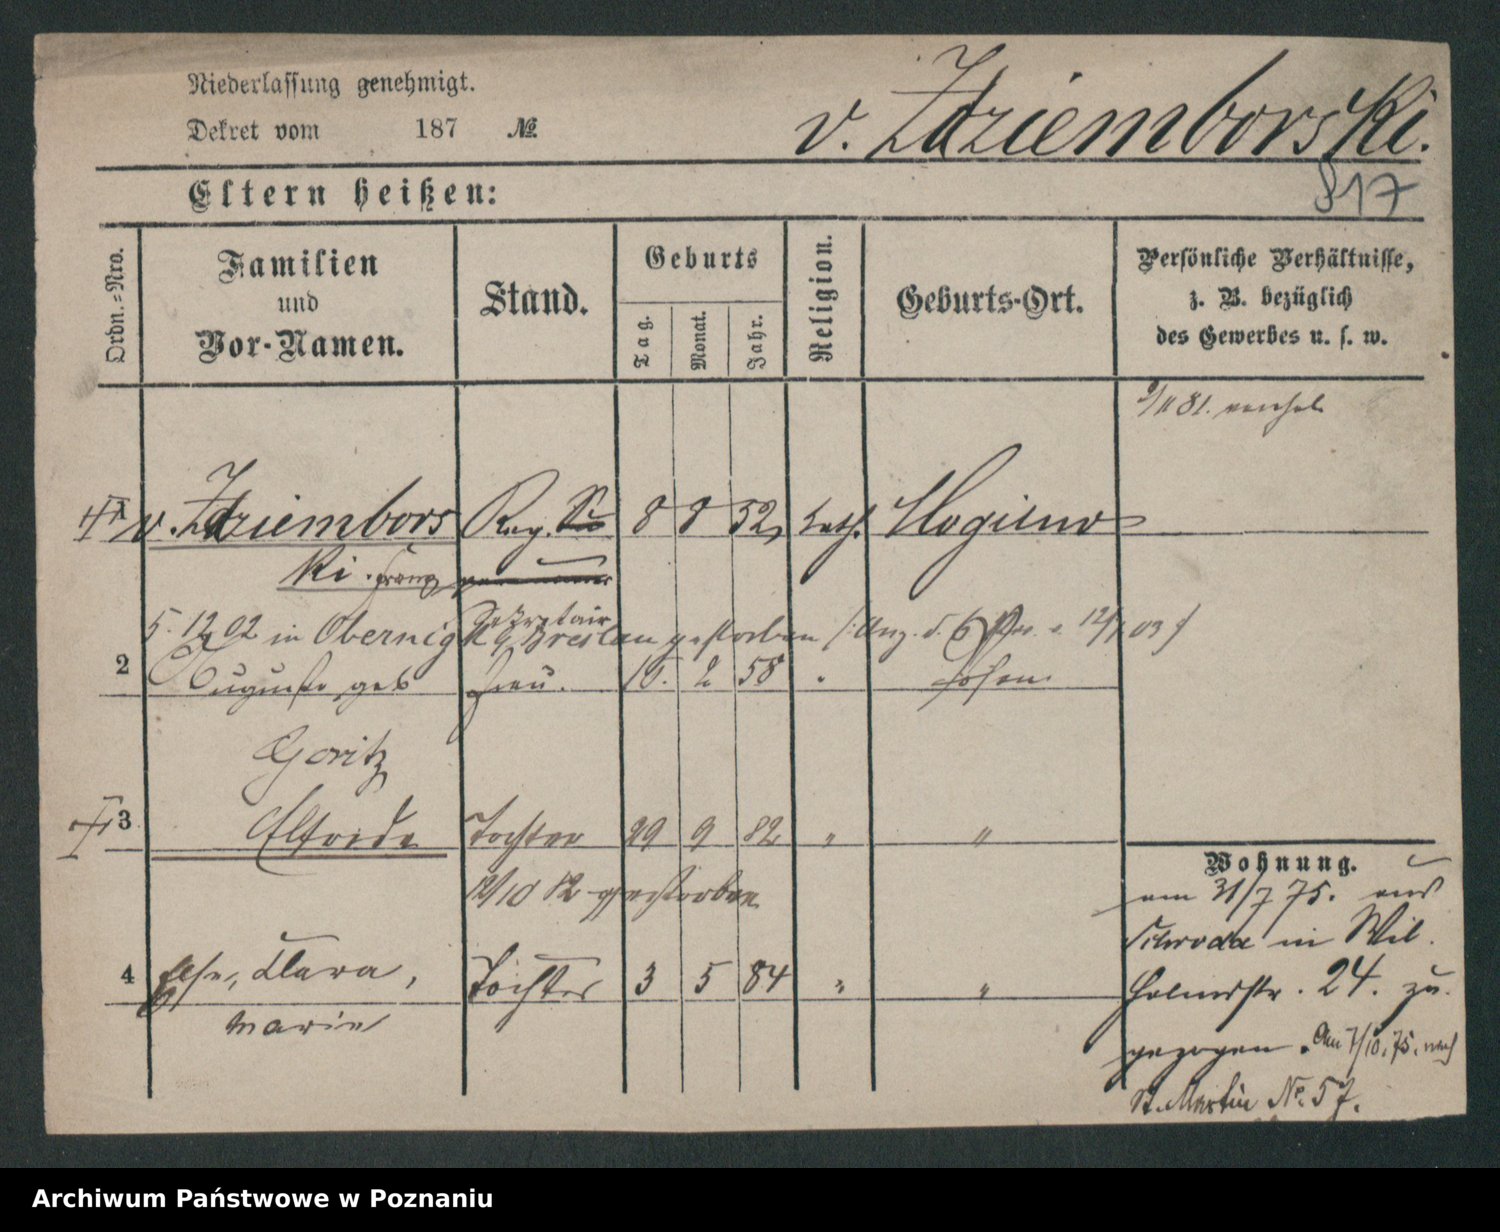 Niederlassung genehmigt.
Dekret vom 187 №
v. Zdziemborski.
817
Eltern heißen:
Ordn.=Nro.
Familien
und
Vor-Namen.
Stand.
Geburts
Tag.
Monat.
Jahr.
Religion.
Geburts-Ort.
Persönliche Verhältnisse,
z. B. bezüglich
des Gewerbes u. s. w.
9/11 81. verehel
v. Zdziembors Reg. 8 8 52, kath. Mogilno
ki. Franz
Sekretair
5. 12 02 in Obernig Breslau gestorben
2 Auguste geb Frau. 15. 2 58 " Posen
Goritz
3 Elfriede Tochter 29 9 82 " "
12/10 82 gestorben
4 Else, Clara, Tochter 3 5 84 " "
Marie
Wohnung.
am 31/7 75. aus
Schroda in Wil
helmstr. 24. zu
gezogen. Am 7/10. 75. nach
St. Martin № 57.
Archiwum Państwowe w Poznaniu